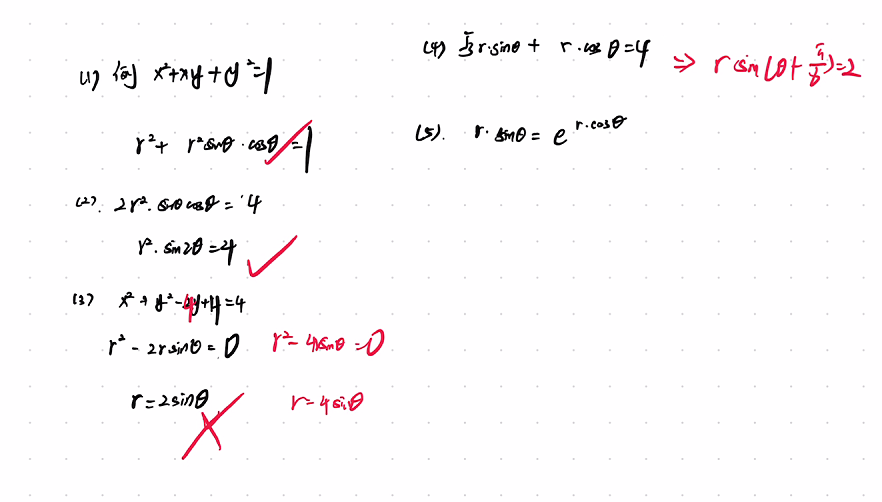 (1) 例 x²+xy+y²=1
r²+ r²sinθ·cosθ=1
(2). 2r²·sinθcosθ=4
r²·sin2θ=4
(3) x²+y²-4y+4=4
r²-2rsinθ=0 r²-4rsinθ=0
r=2sinθ r=4sinθ
(4) √3r·sinθ+ r·cosθ=4 ⇒ r sin(θ+π/6)=2
(5). r·sinθ=e^{r·cosθ}